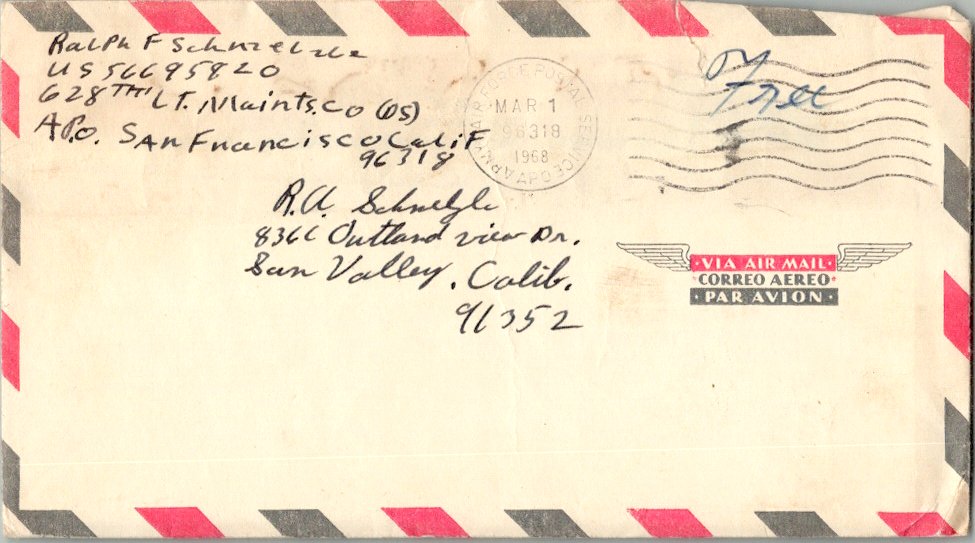 Ralph F Schnelzle
US 56695820
628TH LT. Maint.s.co (DS)
A.P.o. SAn Francisco Calif
96318
ARMY & AIR FORCE POSTAL SERVICE
MAR 1
96318
1968
APO
Free
R.A. Schnelzle
8366 Outland view Dr.
Sun Valley, Calif.
91352
·VIA AIR MAIL·
·CORREO AEREO·
·PAR AVION·